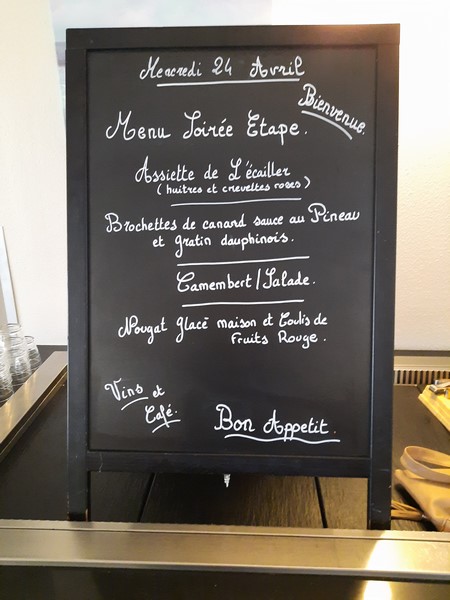 Mercredi 24 Avril
Bienvenue.
Menu Soirée Etape.
Assiette de L'écailler
(huitres et crevettes roses)
Brochettes de canard sauce au Pineau
et gratin dauphinois.
Camembert/Salade.
Nougat glacé maison et Coulis de
Fruits Rouge.
Vins et
Café.
Bon Appetit.